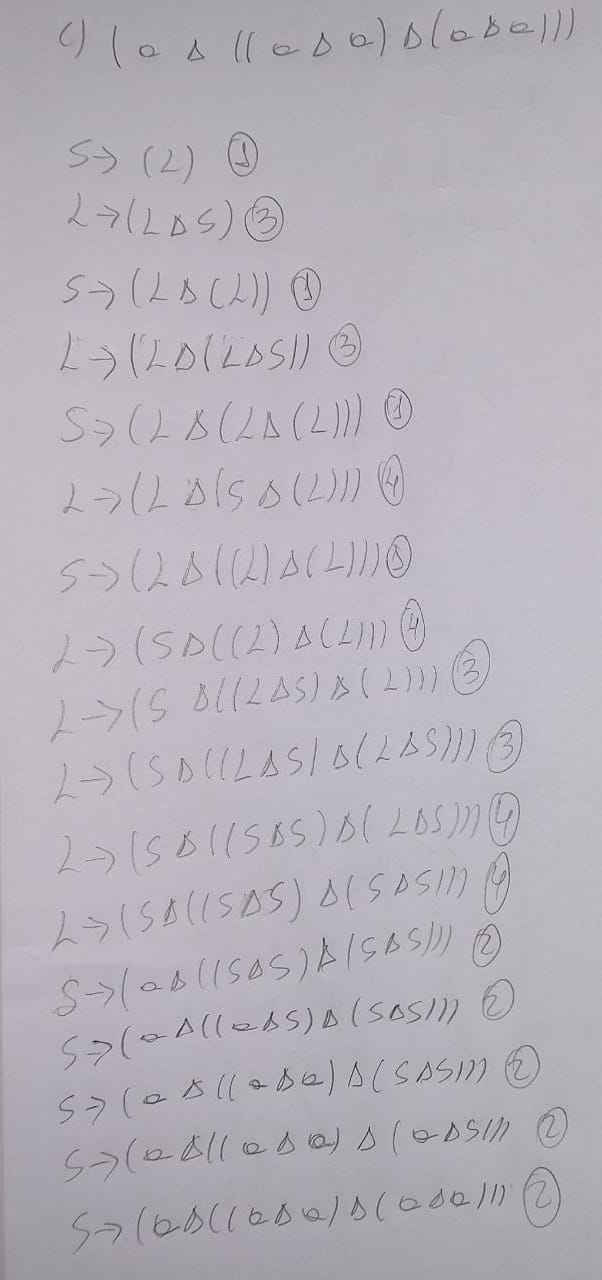 c) (a Δ ((a Δ a) Δ (a Δ a)))
S → (L) ①
L → (L Δ S) ③
S → (L Δ (L)) ①
L → (L Δ (L Δ S)) ③
S → (L Δ (L Δ (L))) ①
L → (L Δ (S Δ (L))) ④
S → (L Δ ((L) Δ (L))) ①
L → (S Δ ((L) Δ (L))) ④
L → (S Δ ((L Δ S) Δ (L))) ③
L → (S Δ ((L Δ S) Δ (L Δ S))) ③
L → (S Δ ((S Δ S) Δ (L Δ S))) ④
L → (S Δ ((S Δ S) Δ (S Δ S))) ④
S → (a Δ ((S Δ S) Δ (S Δ S))) ②
S → (a Δ ((a Δ S) Δ (S Δ S))) ②
S → (a Δ ((a Δ a) Δ (S Δ S))) ②
S → (a Δ ((a Δ a) Δ (a Δ S))) ②
S → (a Δ ((a Δ a) Δ (a Δ a))) ②